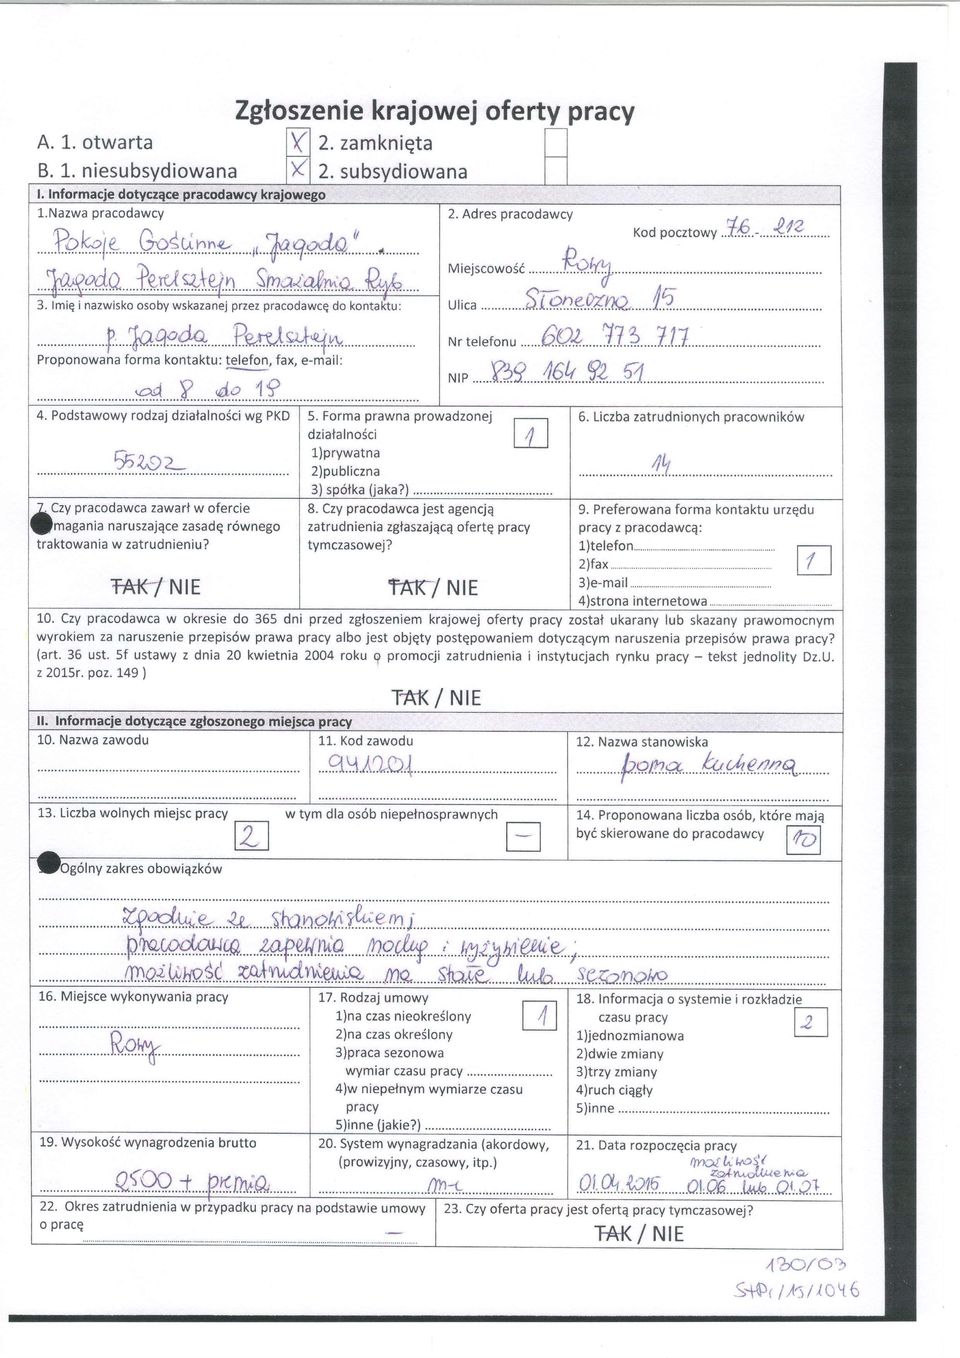 Zgłoszenie krajowej oferty pracy
A. 1. otwarta X 2. zamknięta
B. 1. niesubsydiowana X 2. subsydiowana
I. Informacje dotyczące pracodawcy krajowego
1.Nazwa pracodawcy
Pokoje Gościnne "Jagoda"
Jagoda Perelsztejn Smażalnia Ryb
2. Adres pracodawcy
Kod pocztowy 76-212
Miejscowość Rowy
Ulica Słoneczna 15
Nr telefonu 602 773 717
NIP 839 164 92 51
3. Imię i nazwisko osoby wskazanej przez pracodawcę do kontaktu:
p. Jagoda Perelsztejn
Proponowana forma kontaktu: telefon, fax, e-mail:
od 8 do 19
4. Podstawowy rodzaj działalności wg PKD
55202
5. Forma prawna prowadzonej
działalności 1
1)prywatna
2)publiczna
3) spółka (jaka?)
6. Liczba zatrudnionych pracowników
14
7. Czy pracodawca zawarł w ofercie
magania naruszające zasadę równego
traktowania w zatrudnieniu?
TAK / NIE
8. Czy pracodawca jest agencją
zatrudnienia zgłaszającą ofertę pracy
tymczasowej?
TAK / NIE
9. Preferowana forma kontaktu urzędu
pracy z pracodawcą:
1)telefon
2)fax 1
3)e-mail
4)strona internetowa
10. Czy pracodawca w okresie do 365 dni przed zgłoszeniem krajowej oferty pracy został ukarany lub skazany prawomocnym
wyrokiem za naruszenie przepisów prawa pracy albo jest objęty postępowaniem dotyczącym naruszenia przepisów prawa pracy?
(art. 36 ust. 5f ustawy z dnia 20 kwietnia 2004 roku o promocji zatrudnienia i instytucjach rynku pracy – tekst jednolity Dz.U.
z 2015r. poz. 149 )
TAK / NIE
II. Informacje dotyczące zgłoszonego miejsca pracy
10. Nazwa zawodu
11. Kod zawodu
941201
12. Nazwa stanowiska
pomoc kuchenna
13. Liczba wolnych miejsc pracy 2 w tym dla osób niepełnosprawnych –
14. Proponowana liczba osób, które mają
być skierowane do pracodawcy 10
Ogólny zakres obowiązków
Zgodnie ze stanowiskiem;
pracodawca zapewnia nocleg i wyżywienie;
możliwość zatrudnienia na stałe lub sezonowo
16. Miejsce wykonywania pracy
Rowy
17. Rodzaj umowy
1)na czas nieokreślony 1
2)na czas określony
3)praca sezonowa
wymiar czasu pracy
4)w niepełnym wymiarze czasu
pracy
5)inne (jakie?)
18. Informacja o systemie i rozkładzie
czasu pracy 2
1)jednozmianowa
2)dwie zmiany
3)trzy zmiany
4)ruch ciągły
5)inne
19. Wysokość wynagrodzenia brutto
2500 + premia
20. System wynagradzania (akordowy,
(prowizyjny, czasowy, itp.)
m-c
21. Data rozpoczęcia pracy
możliwość
zatrudnienia
01.04.2015 01.06 lub 01.07
22. Okres zatrudnienia w przypadku pracy na podstawie umowy
o pracę –
23. Czy oferta pracy jest ofertą pracy tymczasowej?
TAK / NIE
130/03
StPr/15/1046